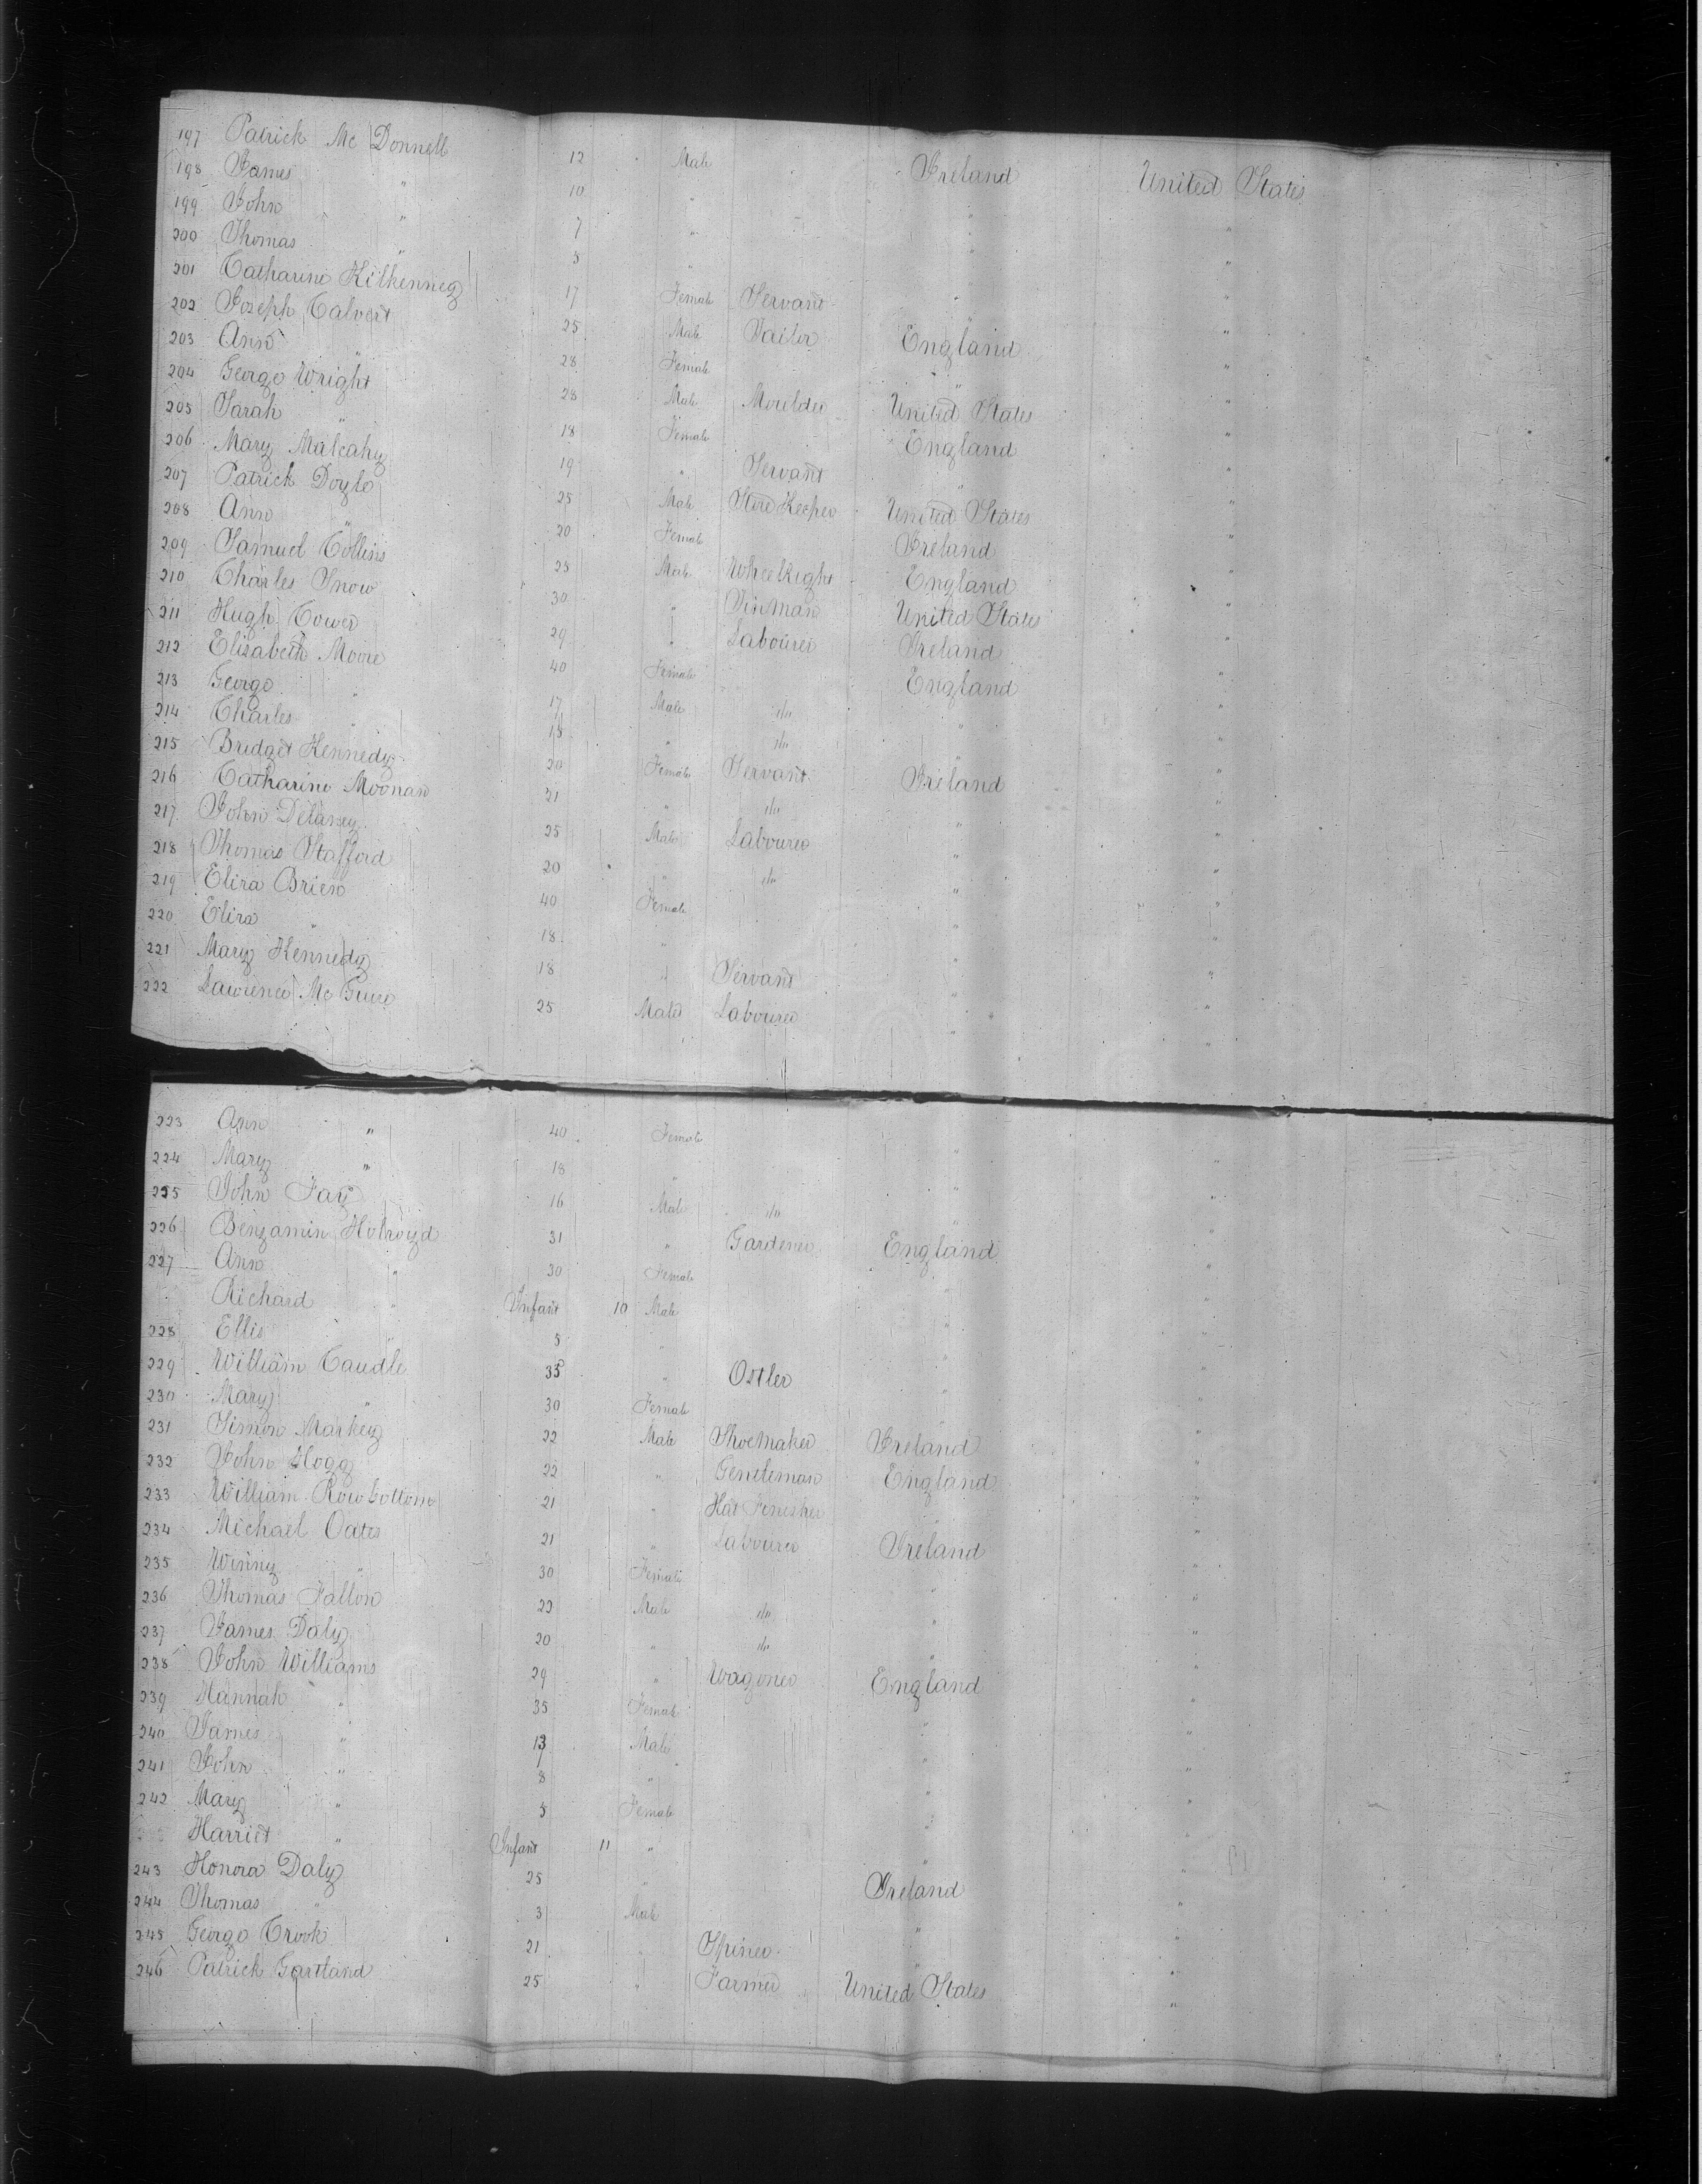 197 Patrick Mc Donnell 12 Male Ireland United States
198 James " 10 " " "
199 John " 7 " " "
200 Thomas " 3 " " "
201 Catharine Kilkenney 17 Female Servant " "
202 Joseph Calvert 25 Male Tailor England "
203 Ann " 28 Female " "
204 George Wright 28 Male Moulder United States "
205 Sarah " 18 Female England "
206 Mary Malcahy 19 " Servant " "
207 Patrick Doyle 25 Male Store Keeper United States "
208 Ann " 20 Female Ireland "
209 Samuel Collins 25 Male Wheelright England "
210 Charles Snow 30 " Tinman United States "
211 Hugh Cower 29 " Labourer Ireland "
212 Elisabeth Moore 40 Female England "
213 George " 17 Male do " "
214 Charles " " do " "
215 Bridget Kennedy 20 Female Servant Ireland "
216 Catharine Moonan 21 " do " "
217 John Delaney 25 Male Labourer " "
218 Thomas Stafford 20 " do " "
219 Eliza Brien 40 Female " "
220 Eliza " 18 " " "
221 Mary Kennedy 18 " Servant " "
222 Lawrence Mc Guire 25 Male Labourer " "
223 Ann " 40 Female " "
224 Mary " 18 " " "
225 John Fay 16 Male do " "
226 Benjamin Holroyd 31 " Gardener England "
227 Ann " 30 Female " "
Richard " Infant 10 Male " "
228 Ellis " 5 " " "
229 William Caudle 35 " Ostler " "
230 Mary " 30 Female " "
231 Simon Markey 22 Male Shoemaker Ireland "
232 John Hogg 22 " Gentleman England "
233 William Rowbottom 21 " Hat Finesher " "
234 Michael Oates 21 " Labourer Ireland "
235 Winny " 30 Female " "
236 Thomas Fallon 22 Male do " "
237 James Daly 20 " do " "
238 John Williams 29 " Wagoner England "
239 Hannah " 35 Female " "
240 James " 13 Male " "
241 John " 8 " " "
242 Mary " 5 Female " "
Harriet " Infant 11 " " "
243 Honora Daly 25 " Ireland "
244 Thomas " 3 Male " "
245 George Crook 21 " Spiner " "
246 Patrick Gartland 25 " Farmer United States "